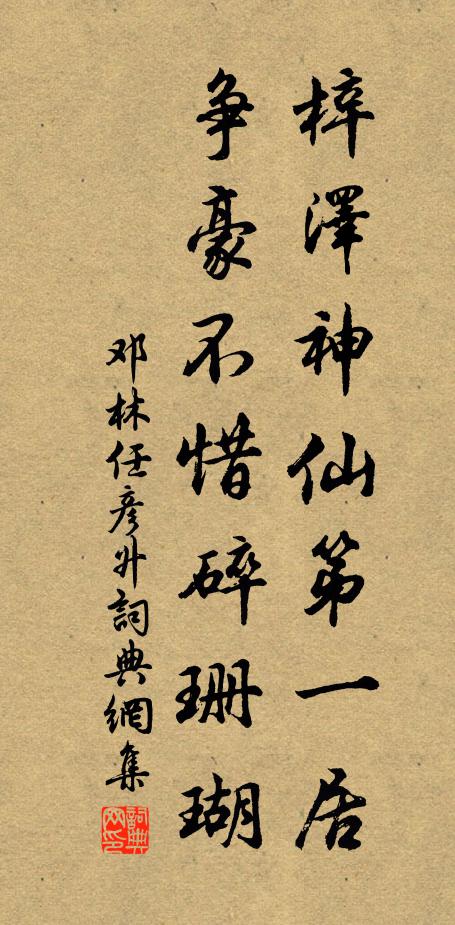 梓澤神仙第一居
争豪不惜碎珊瑚
邓林任彦升詞典網集
詞典网印